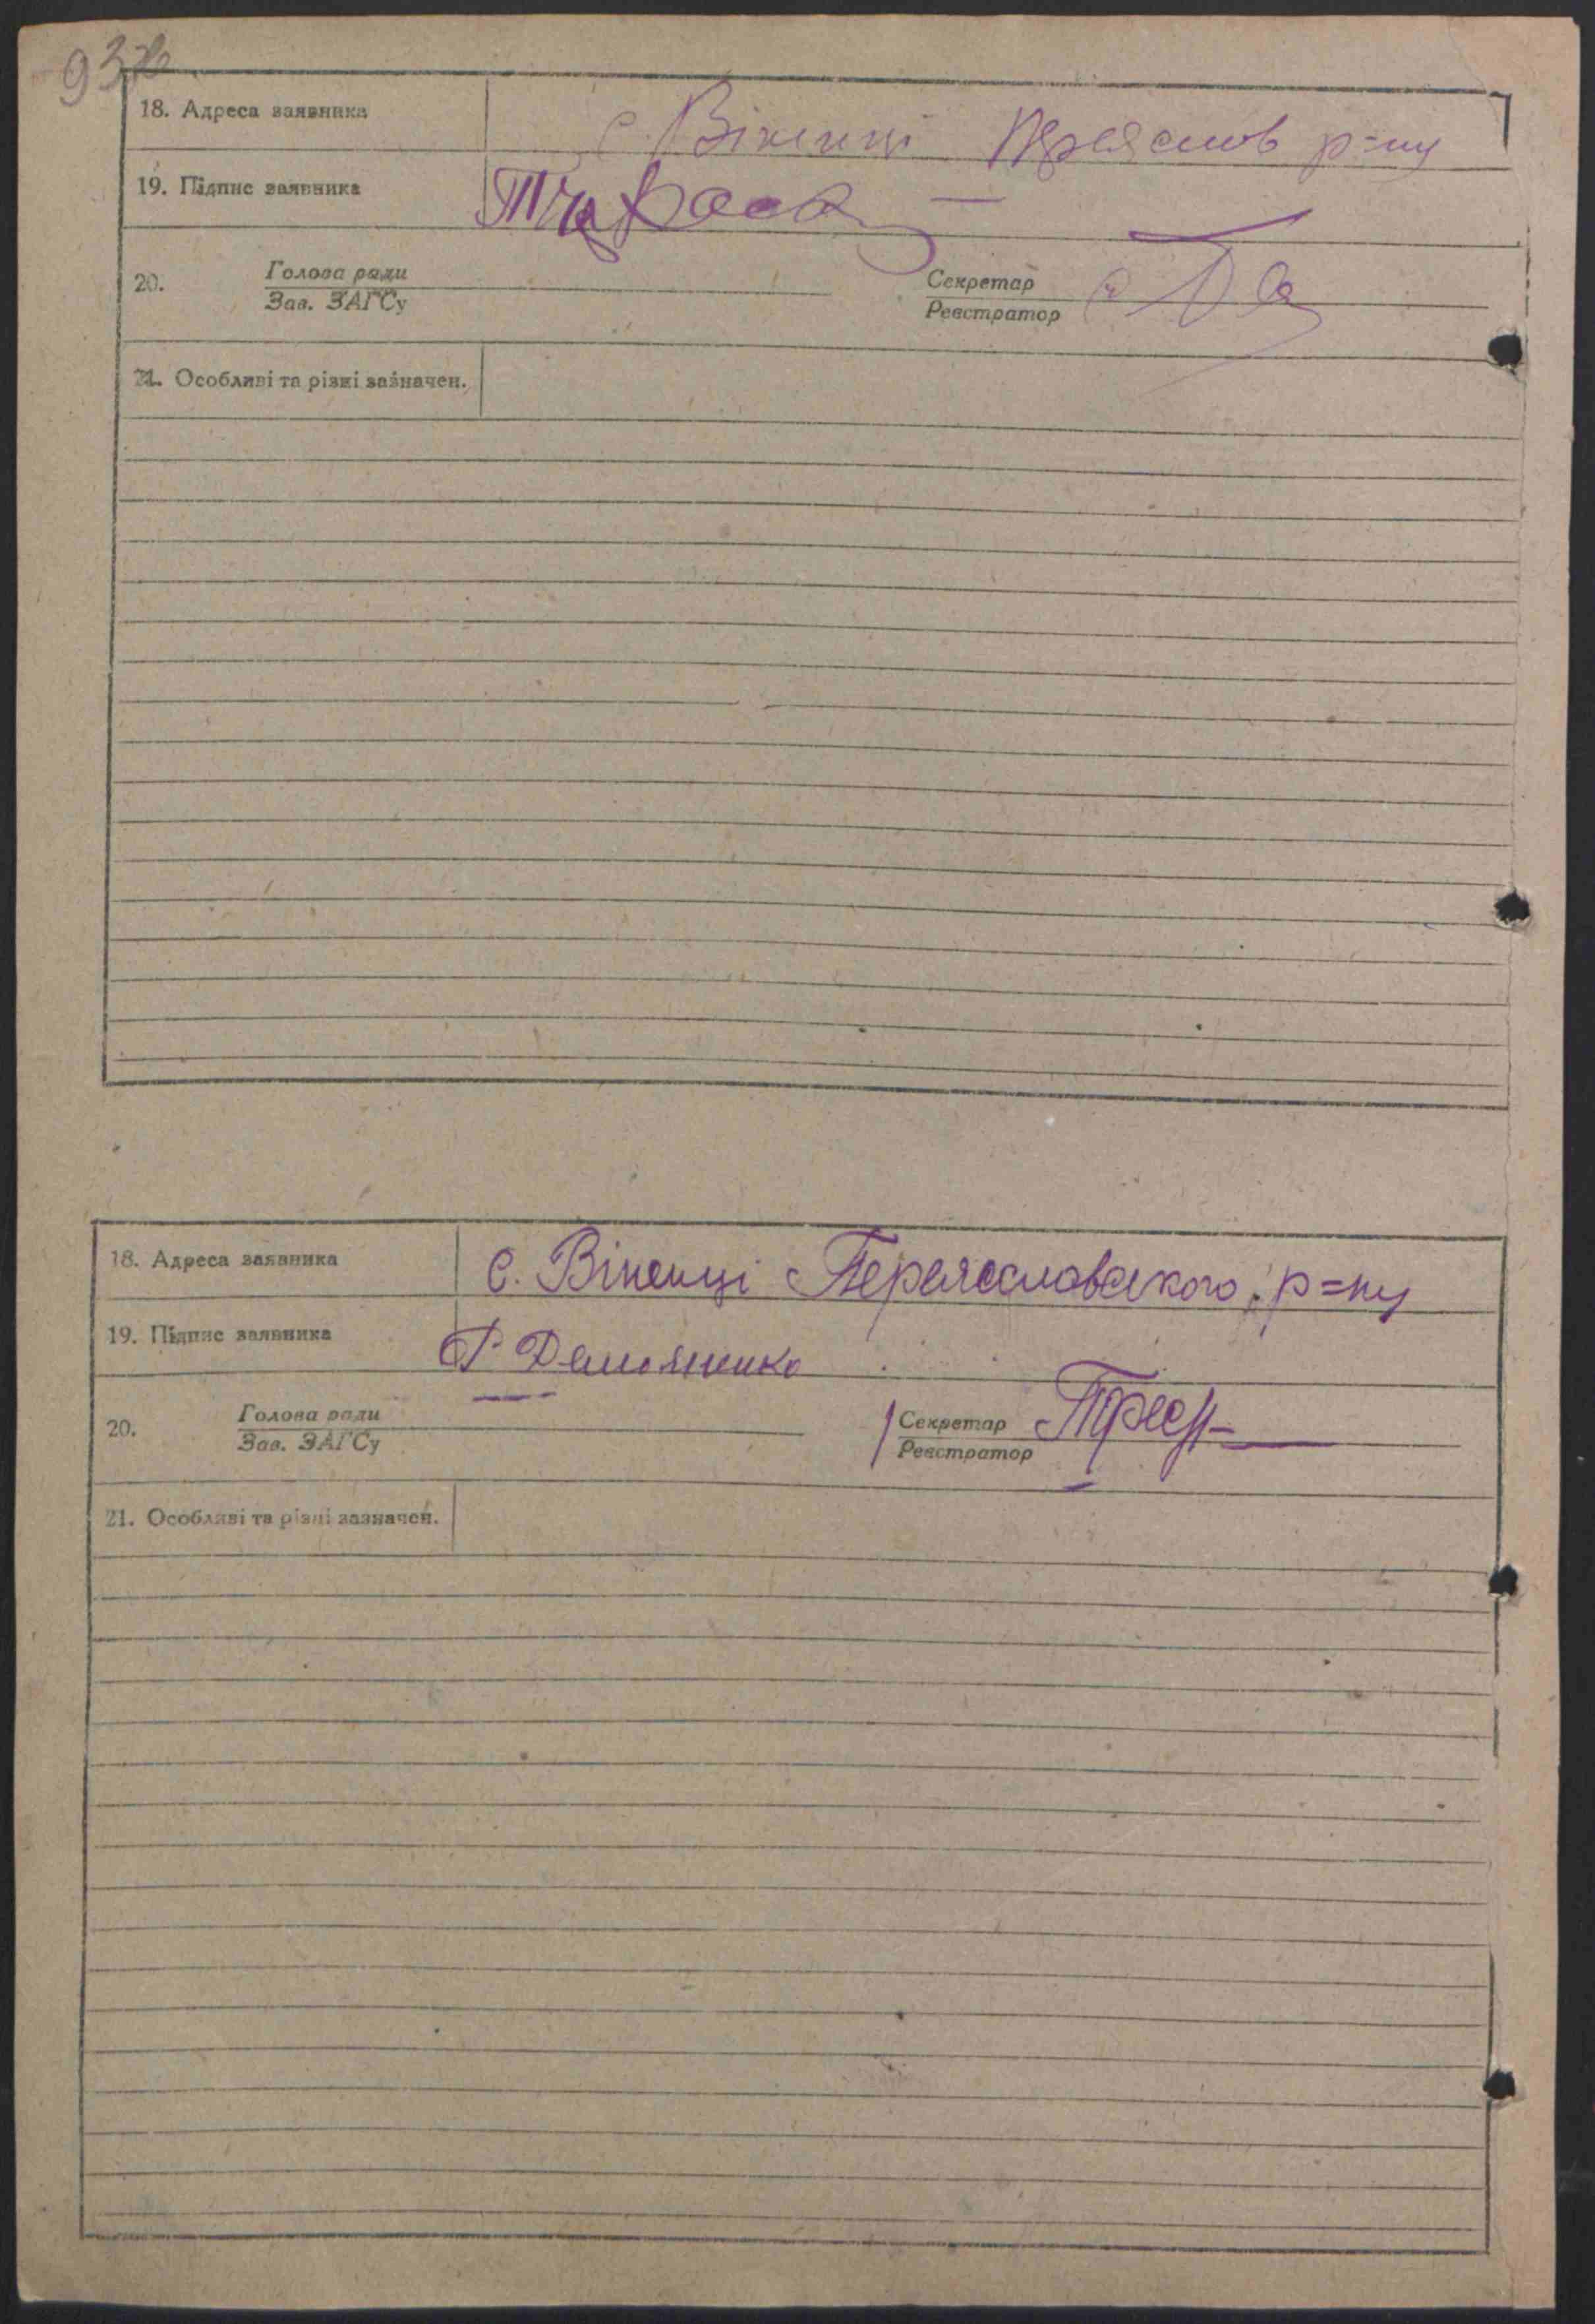 93
18. Адреса заявника с. Віненці Переяслов р=ну
19. Підпис заявника
20. Голова ради Секретар
Зав. ЗАГСу Реєстратор
21. Особливі та різні зазначен.
18. Адреса заявника с. Віненці Переяславського р=ну
19. Підпис заявника Демяненко
20. Голова ради Секретар
Зав. ЗАГСу Реєстратор
21. Особливі та різні зазначен.